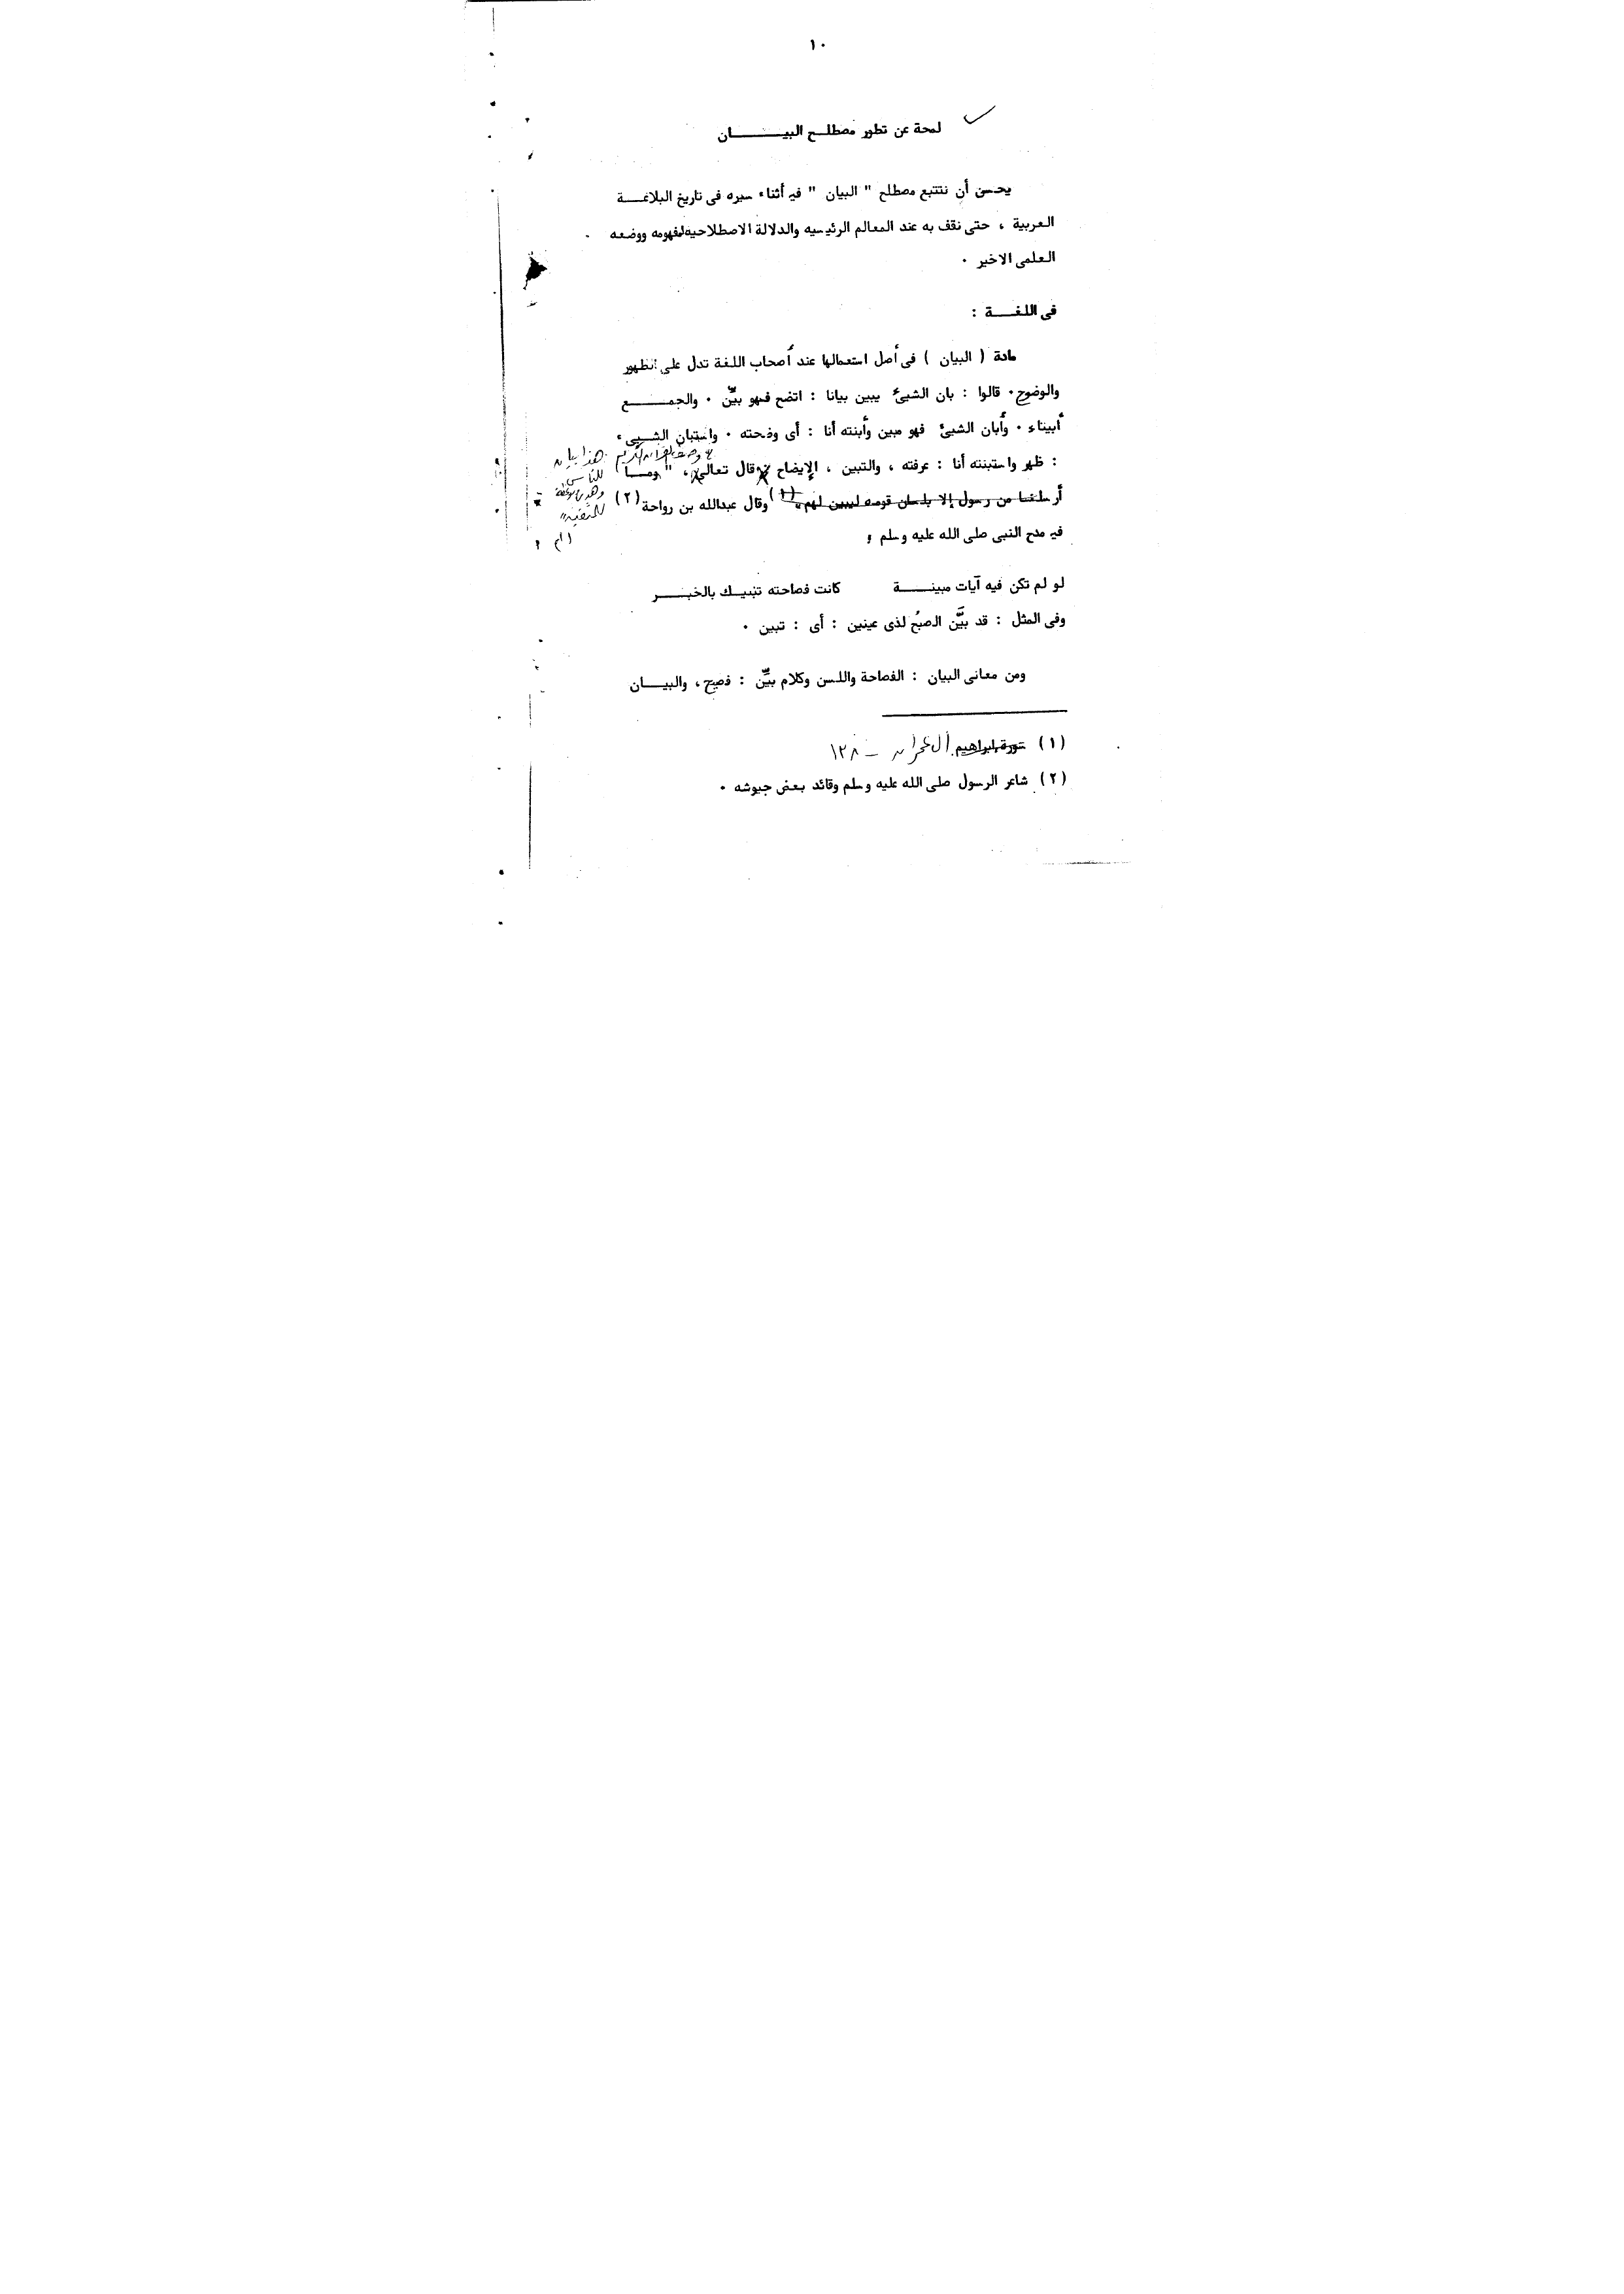 ١٠
لمحة عن تطور مصطلح البيــــــان
يحسن أن نتتبع مصطلح " البيان " في أثناء سيره فى تاريخ البلاغـــة
العربية ، حتى نقف به عند المعالم الرئيسيه والدلالة الاصطلاحيه لمفهومه ووضعه
العلمى الاخير ٠
فى اللغــــة :
مادة ( البيان ) فى أصل استعمالها عند أصحاب اللغة تدل على الظهور
والوضوح ٠ قالوا : بان الشيئ يبين بيانا : اتضح فهو بيِّن ٠ والجمــــــع
أبيناء ٠ وأبان الشيئ فهو مبين وأبنته أنا : أى وضحته ٠ واستبان الشــيء
القرآن الكريم هذا بيان
: ظهر واستبنته أنا : عرفته ، والتبين ، الإيضاح قال تعالى ، " ومــا
للناس
وهدى وموعظة
أرسلنا من رسول إلا بلسان قومه ليبين لهم " (١) وقال عبدالله بن رواحة (٢)
للمتقين "
في مدح النبى صلى الله عليه وسلم :
لو لم تكن فيه آيات مبينـــــة كانت فصاحته تنبيـك بالخبـــــر
وفى المثل : قد بيَّن الصبُح لذى عينين : أى : تبين ٠
ومن معانى البيان : الفصاحة واللسن وكلام بيِّن : فصيح ، والبيـــان
(١) سورة إبراهيم آل عمران – ١٣٨
(٢) شاعر الرسول صلى الله عليه وسلم وقائد بعض جيوشه ٠